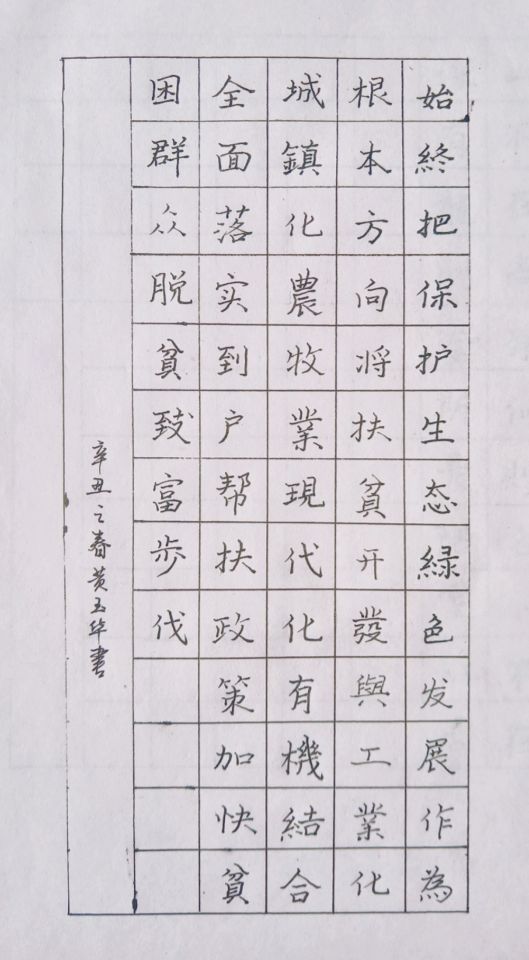 始終把保护生态綠色发展作為
根本方向将扶貧开發與工業化
城鎮化農牧業現代化有機結合
全面落实到户帮扶政策加快貧
困群众脱貧致富步伐
辛丑之春黄玉华書